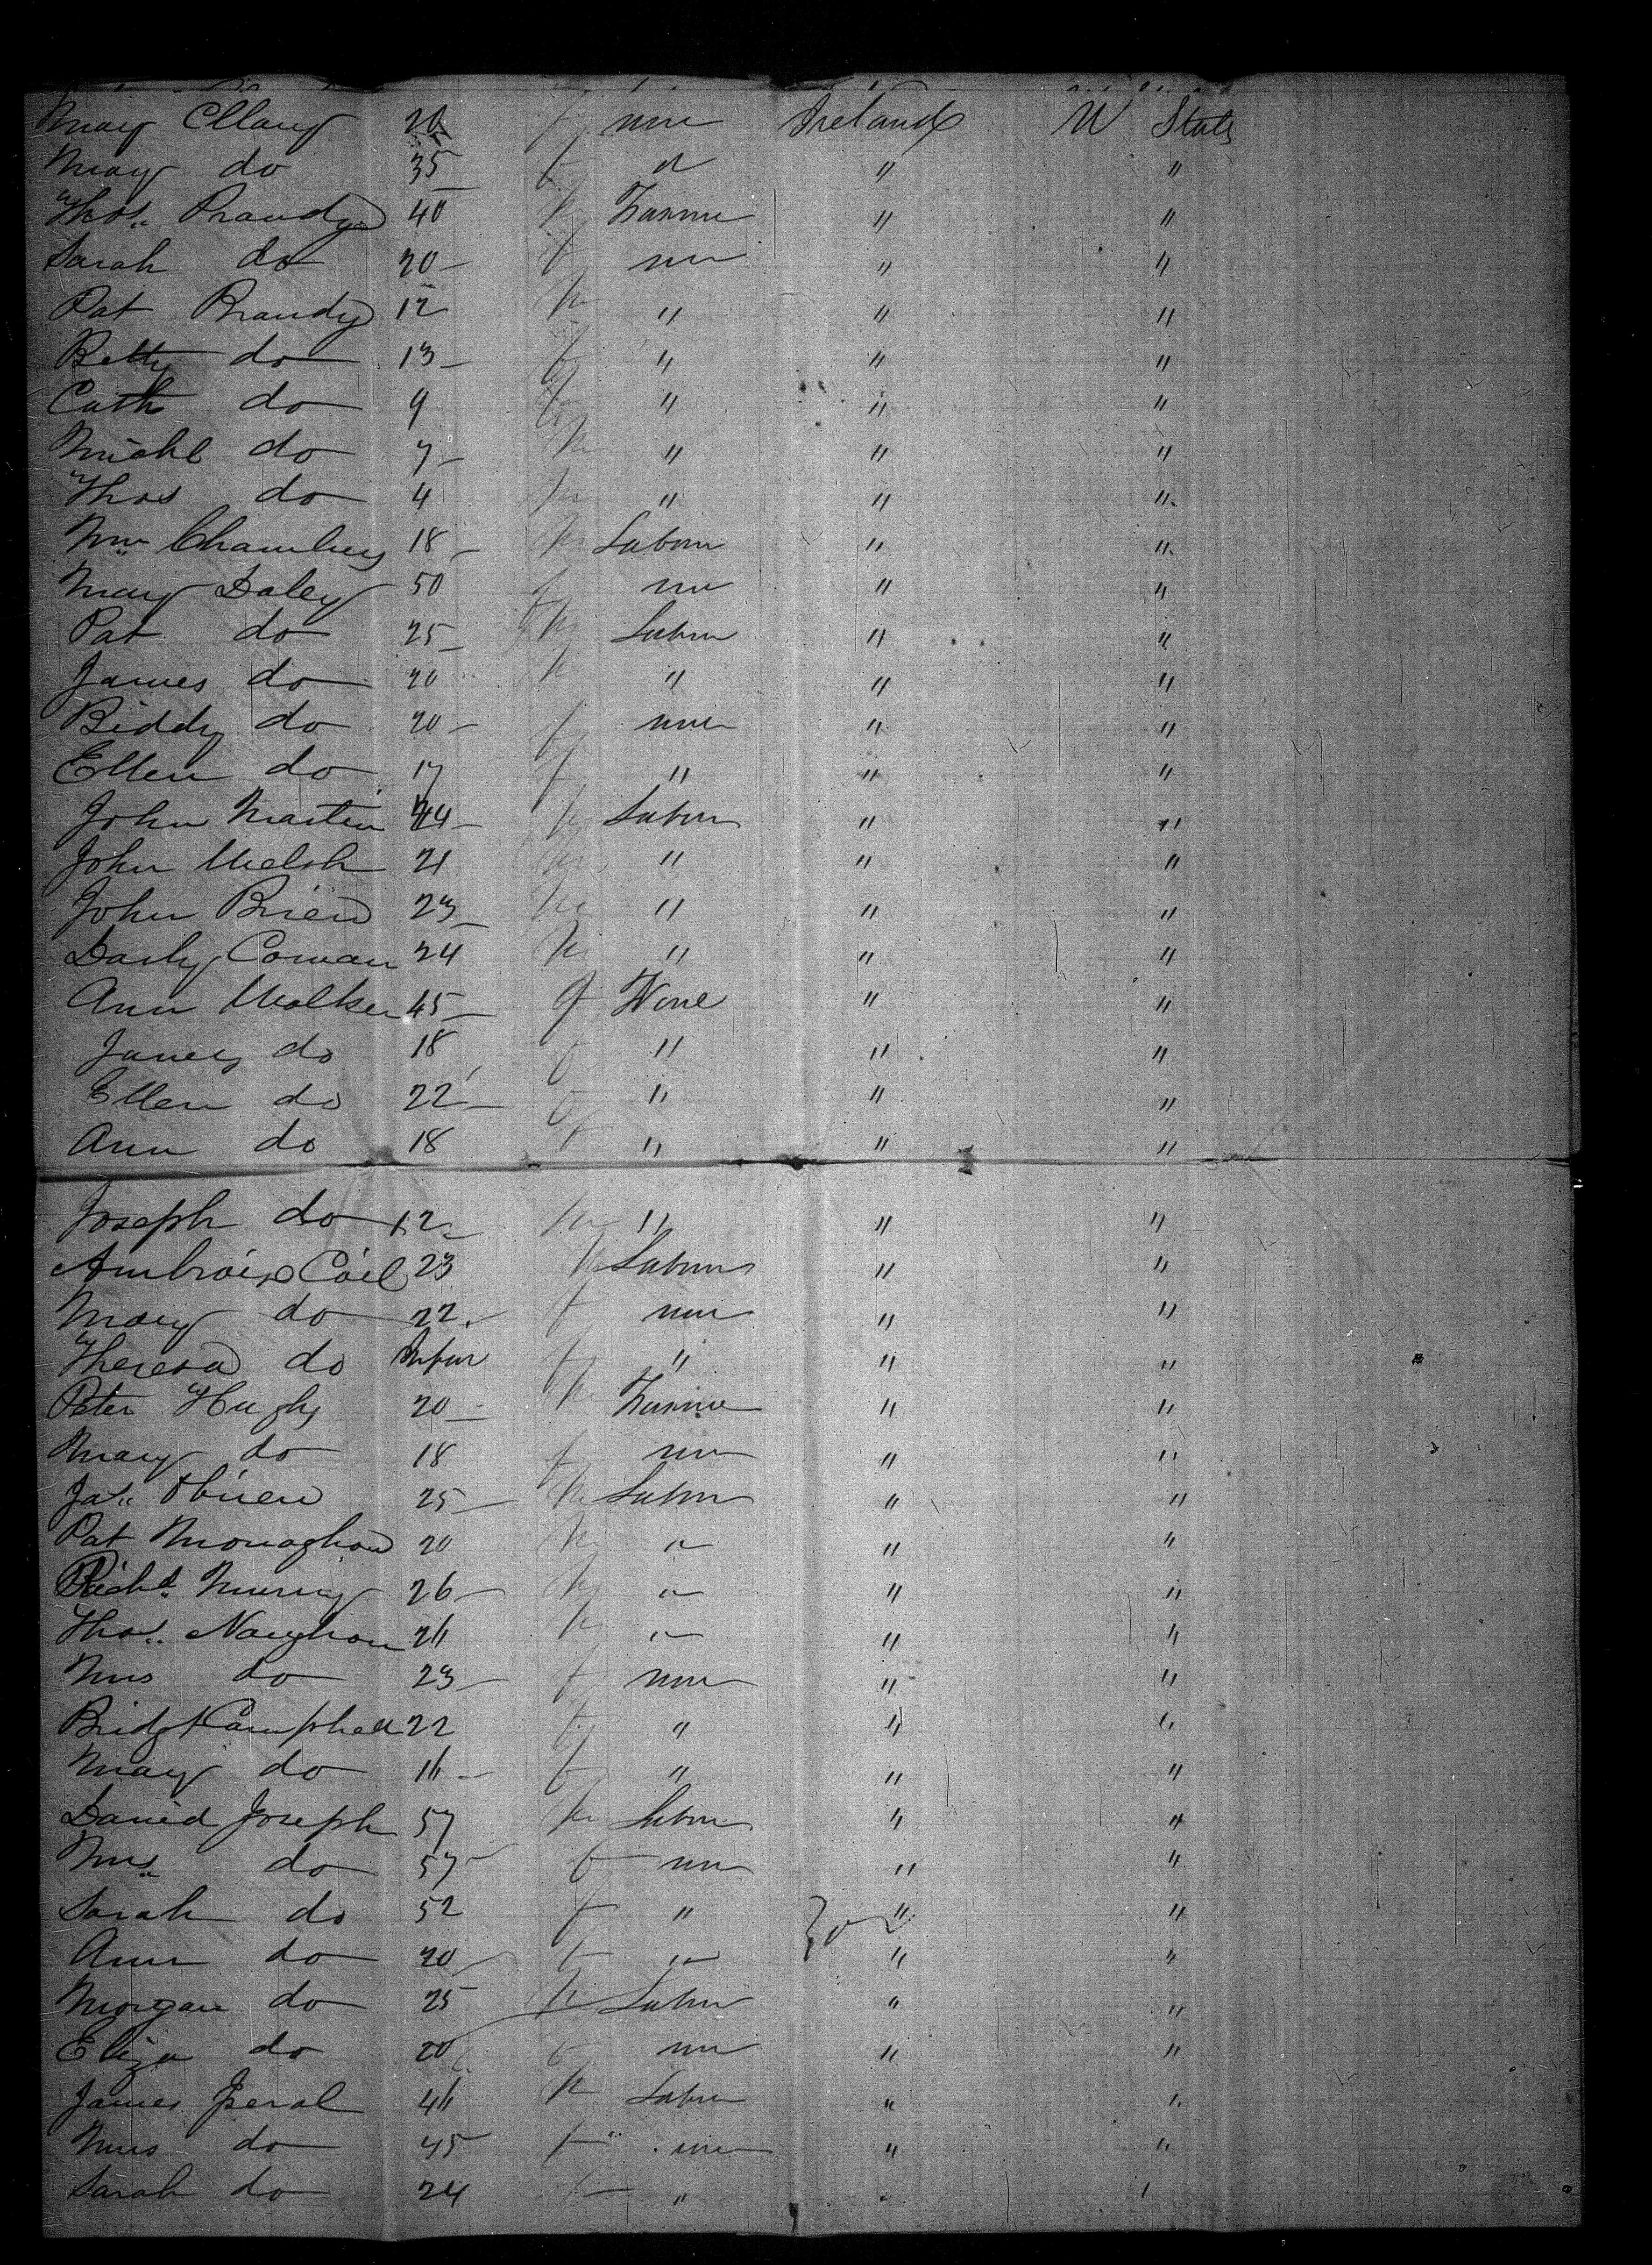 Mary Cllary 20 f none Ireland U States
Mary do 35 f d " "
Thos. Prandy 40 m Farmer " "
Sarah do 20 f none " "
Pat Prandy 12 m " " "
Betty do 13 f " " "
Cath do 9 f " " "
Michl do 7 m " " "
Thos do 4 m " " "
Wm Chambers 18 m Labour " "
Mary Daley 50 f none " "
Pat do 25 m Labour " "
James do 20 m " " "
Biddy do 20 f none " "
Ellen do 17 f " " "
John Martin 44 m Labour " "
John Welsh 21 m " " "
John Brien 23 m " " "
Darly Cowan 24 m " " "
Ann Walker 45 f None " "
James do 18 f " " "
Ellen do 22 f " " "
Ann do 18 f " " "
Joseph do 12 m " " "
Ambrois Coil 23 m Labour " "
Mary do 22 f none " "
Theresa do Infan f " " "
Peter Hughs 20 m Farmer " "
Mary do 18 f none " "
Jas. Obrien 25 m Labour " "
Pat Monaghan 20 m " " "
Richd. Murray 26 m " " "
Thos. Naughan 26 m " " "
Mrs do 23 f none " "
Bridgt Camphell 22 f " " "
Mary do 16 f " " "
David Joseph 57 m Labour " "
Mrs. do 57 f none " "
Sarah do 52 f " " "
Ann do 20 f " " "
Morgan do 25 m Labour " "
Eliza do 20 f none " "
James Jseral 46 m Labour " "
Mrs do 45 f none " "
Sarah do 24 f " " "